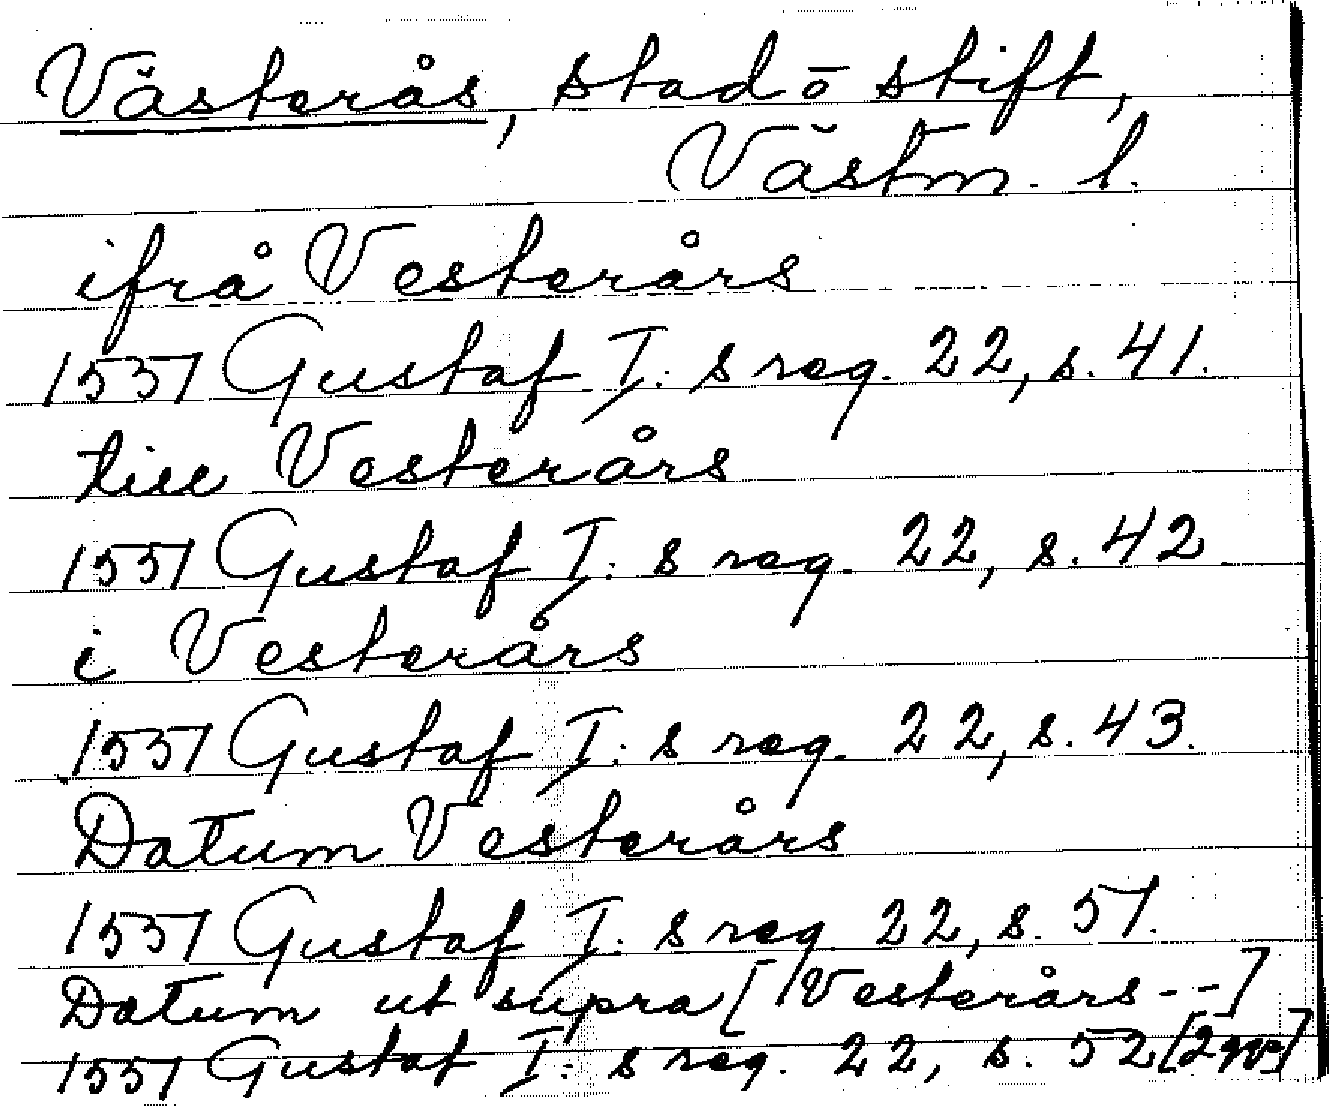 Västerås, stad o stift,
Västm. l.
ifrå Vesterårs
1551 Gustaf I:s reg. 22, s. 41.
till Vesterårs
1551 Gustaf I:s reg. 22, s. 42
i Vesterårs
1551 Gustaf I:s reg. 22, s. 43.
Datum Vesterårs
1551 Gustaf I:s reg. 22, s. 51.
Datum ut supra [Vesterårs --]
1551 Gustaf I:s reg. 22, s. 52 [2 ggr]